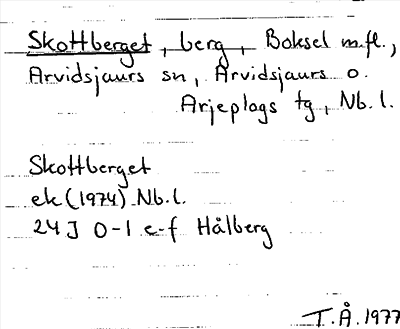 Skottberget, berg, Boksel m.fl.,
Arvidsjaurs sn, Arvidsjaurs o.
Arjeplogs tg, Nb.l.
Skottberget
ek (1974) Nb.l.
24 J 0-1 e-f Hålberg
T.Å. 1977